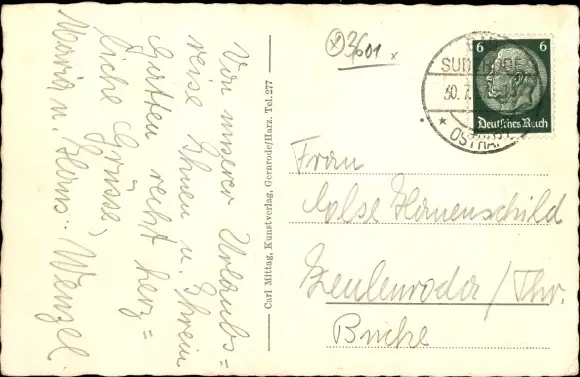 Von unserer Urlaubs=
reise Ihnen u. Ihrem
Gatten recht herz=
liche Grüsse,
Maria u. Hans Wenzel.
Carl Mittag, Kunstverlag, Gernrode/Harz. Tel. 277
3601 x
BAD
SUDERODE
30.7.
* OSTHARZ
6 6
Deutsches Reich
Frau
Else Hauenschild
Zeulenroda / Thr.